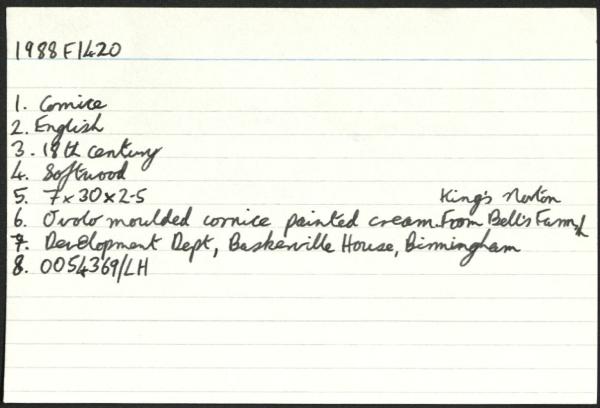 1988 F1420
1. Cornice
2. English
3. 18th century
4. Softwood
5. 7 x 30 x 2.5
King's Norton
6. Ovolo moulded cornice painted cream. From Bell's Farm,
7. Development Dept, Baskerville House, Birmingham
8. 0054369/LH